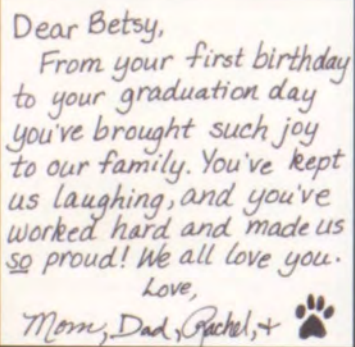 Dear Betsy,
From your first birthday
to your graduation day
you've brought such joy
to our family. You've kept
us laughing, and you've
worked hard and made us
so proud! We all love you.
Love,
Mom, Dad, Rachel, +